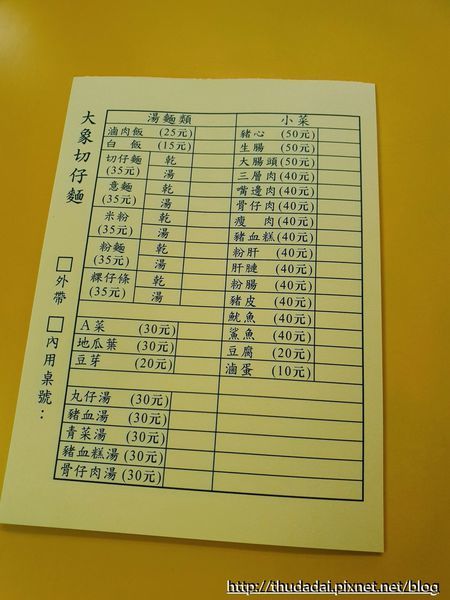 大象切仔麵
□外帶 □內用桌號：
湯麵類
滷肉飯 (25元)
白 飯 (15元)
切仔麵 (35元) 乾 湯
意麵 (35元) 乾 湯
米粉 (35元) 乾 湯
粉麵 (35元) 乾 湯
粿仔條 (35元) 乾 湯
A菜 (30元)
地瓜葉 (30元)
豆芽 (20元)
丸仔湯 (30元)
豬血湯 (30元)
青菜湯 (30元)
豬血糕湯(30元)
骨仔肉湯(30元)
小菜
豬心 (50元)
生腸 (50元)
大腸頭(50元)
三層肉(40元)
嘴邊肉(40元)
骨仔肉(40元)
瘦 肉(40元)
豬血糕(40元)
粉肝 (40元)
肝腱 (40元)
粉腸 (40元)
豬皮 (40元)
魷魚 (40元)
鯊魚 (40元)
豆腐 (20元)
滷蛋 (10元)
http://thudadai.pixnet.net/blog